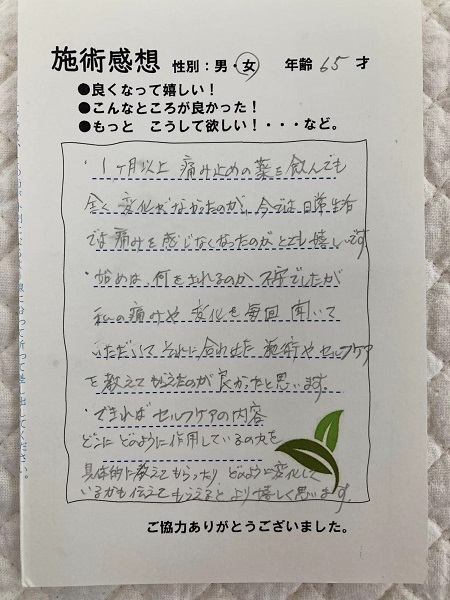 施術感想 性別：男・女 年齢 65 才
●良くなって嬉しい！
●こんなところが良かった！
●もっと こうして欲しい！・・・など。
・1ヶ月以上 痛み止めの薬を飲んでも
全く 変化がなかったのが、今では日常生活
では痛みを感じなくなったのがとても嬉しいです
・始めは、何をされるのか 不安でしたが
私の痛みや 変化を毎回 聞いて
いただいて それに合わせた 施術やセルフケア
を教えてもらえたのが良かったと思います。
・できればセルフケアの内容
どこに どのように作用しているのかを
具体的に教えてもらったり、どのように変化して
いるかも伝えてもらえると より嬉しく思います。
ご協力ありがとうございました。